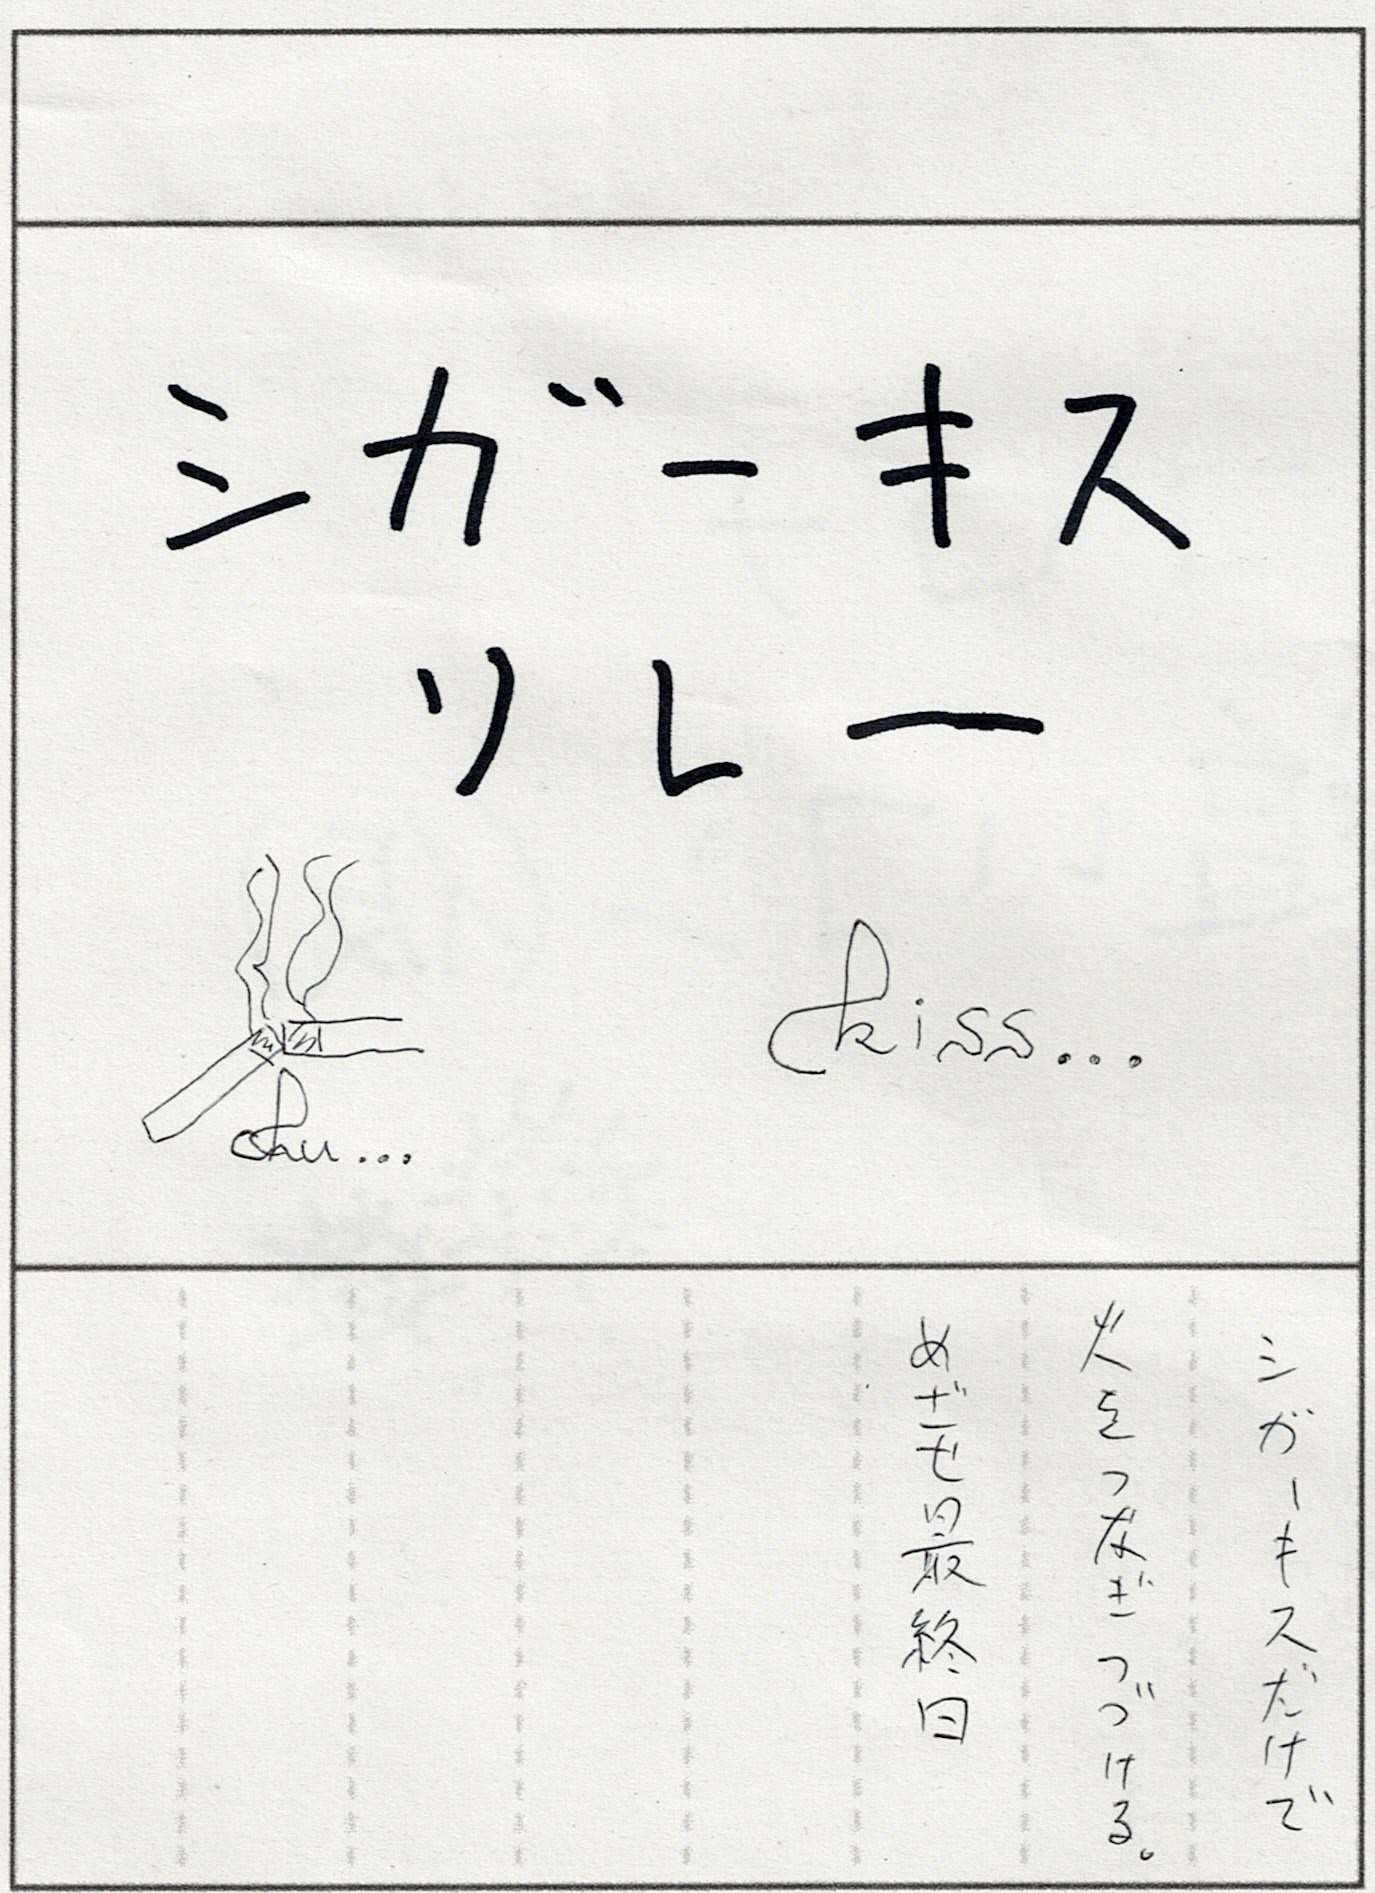 シガーキス
リレー
chu...
kiss...
シガーキスだけで
火をつなぎつづける。
めざせ最終日